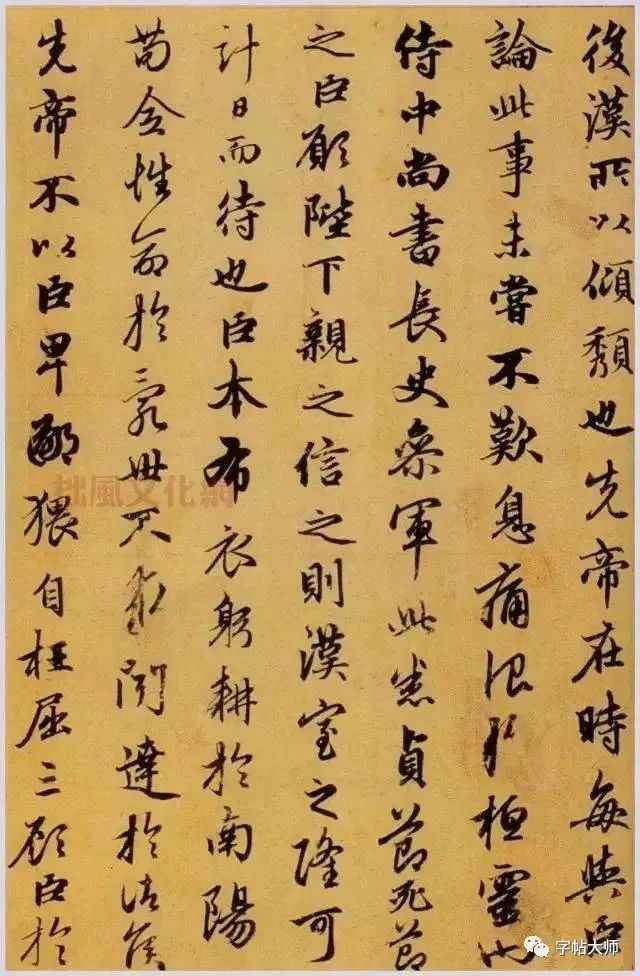 後漢所以傾頽也先帝在時每與臣
論此事未嘗不歎息痛恨於桓靈也
侍中尚書長史參軍此悉貞節死節
之臣願陛下親之信之則漢室之隆可
計日而待也臣本布衣躬耕於南陽
苟全性命於亂世不求聞達於諸侯
先帝不以臣卑鄙猥自枉屈三顧臣於
拙風文化網
字帖大师